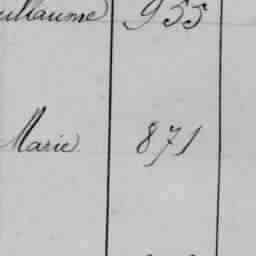 uillaume 955
Marie 871